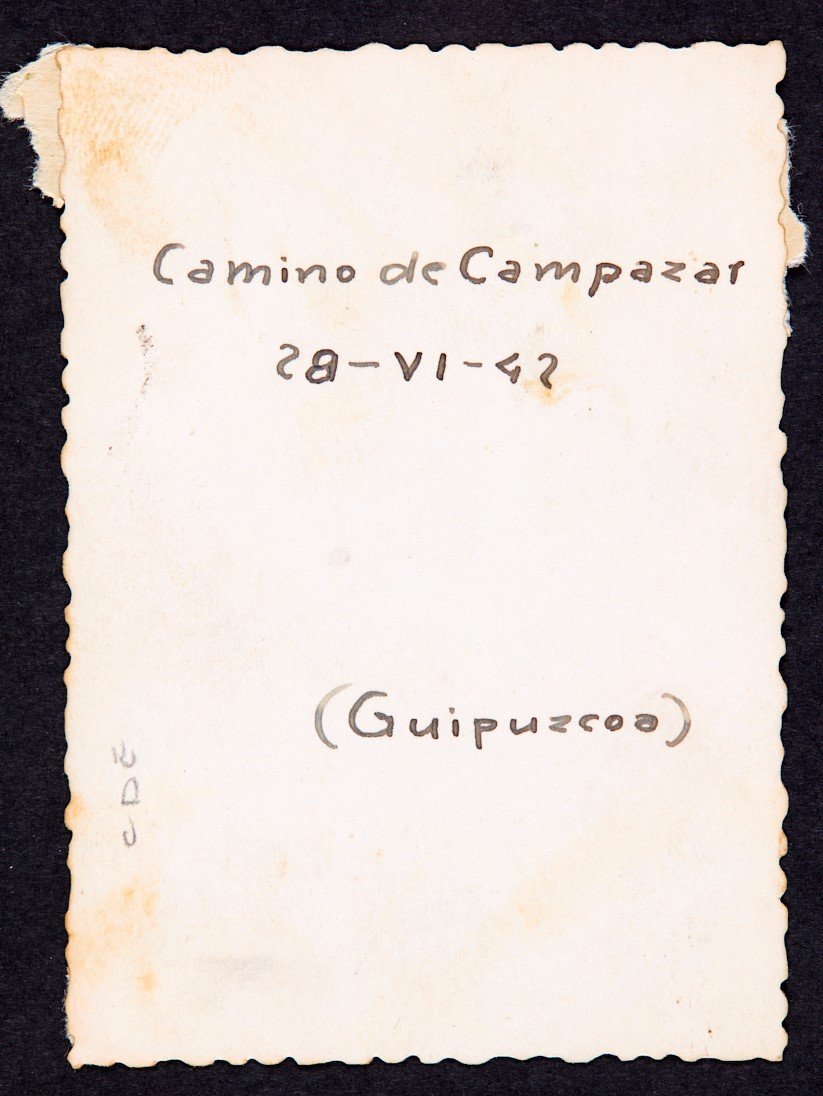 Camino de Campazar
28-VI-42
(Guipuzcoa)